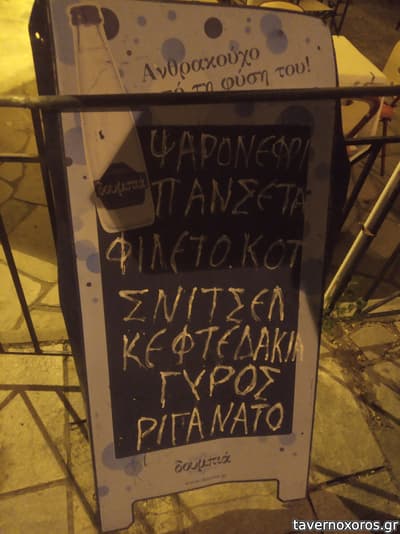 Ανθρακούχο
από τη φύση του!
δουμπιά
ΨΑΡΟΝΕΦΡΙ
ΠΑΝΣΕΤΑ
ΦΙΛΕΤΟ.ΚΟΤ
ΣΝΙΤΣΕΛ
ΚΕΦΤΕΔΑΚΙΑ
ΓΥΡΟΣ
ΡΙΓΑΝΑΤΟ
δουμπιά
tavernoxoros.gr